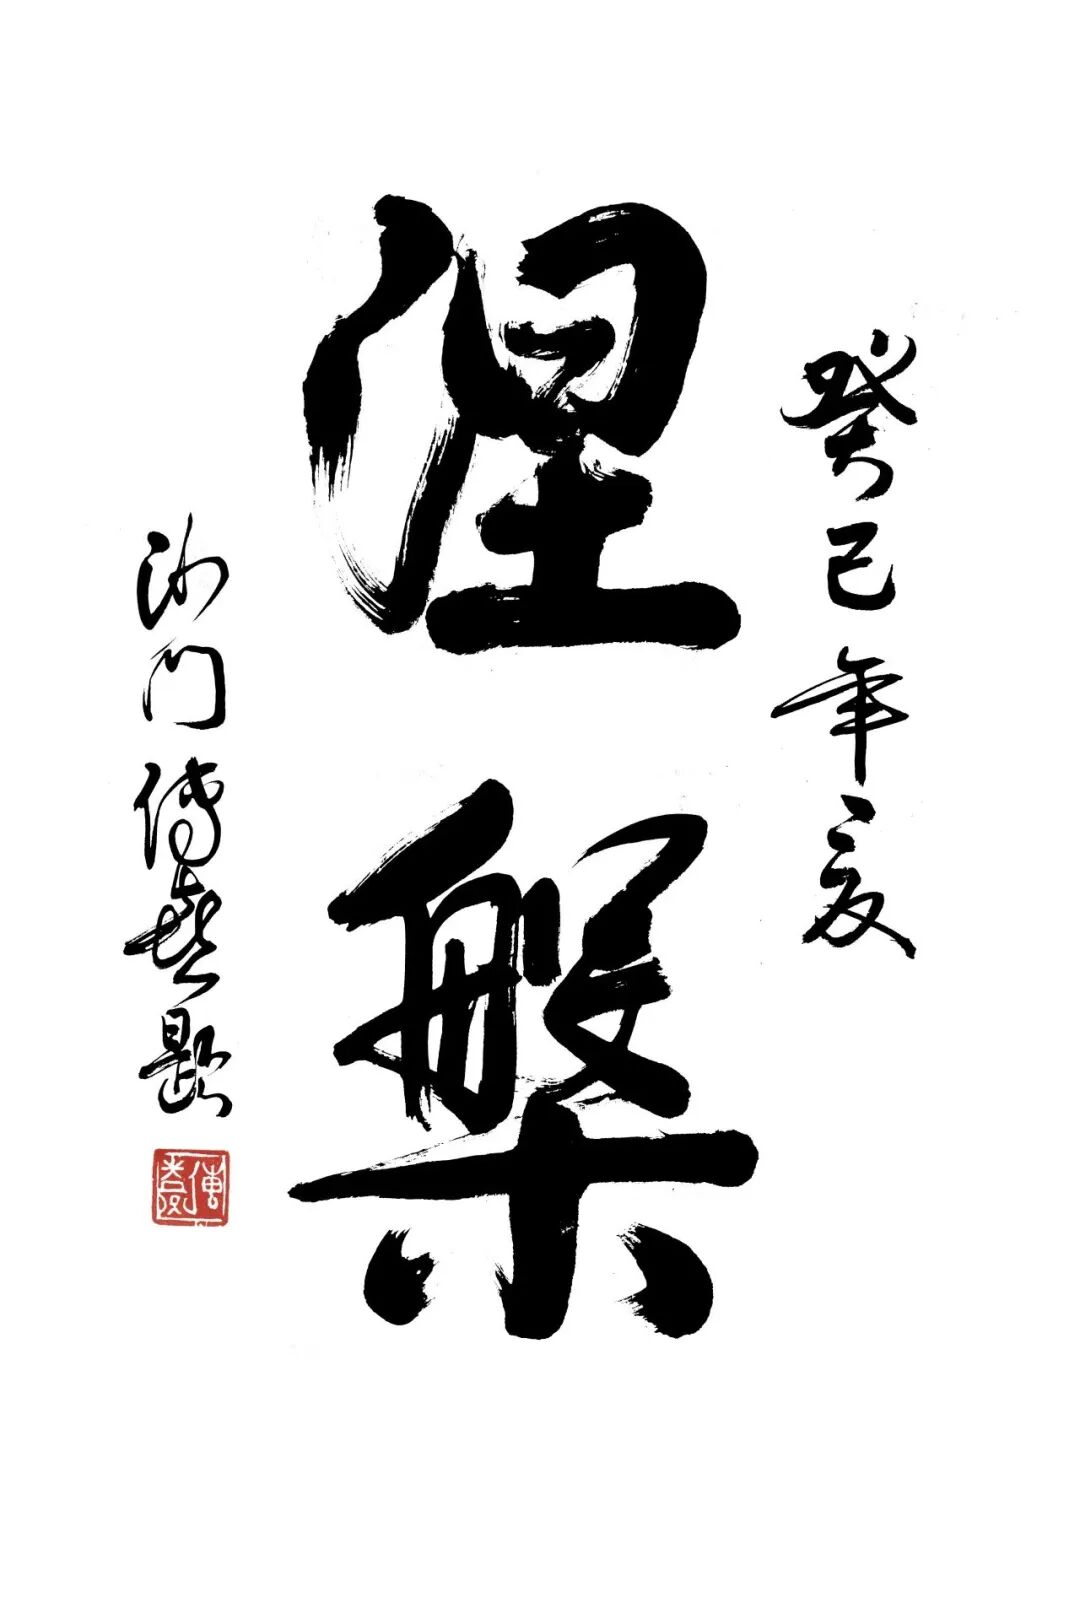 癸巳年夏
涅槃
沙门传喜题